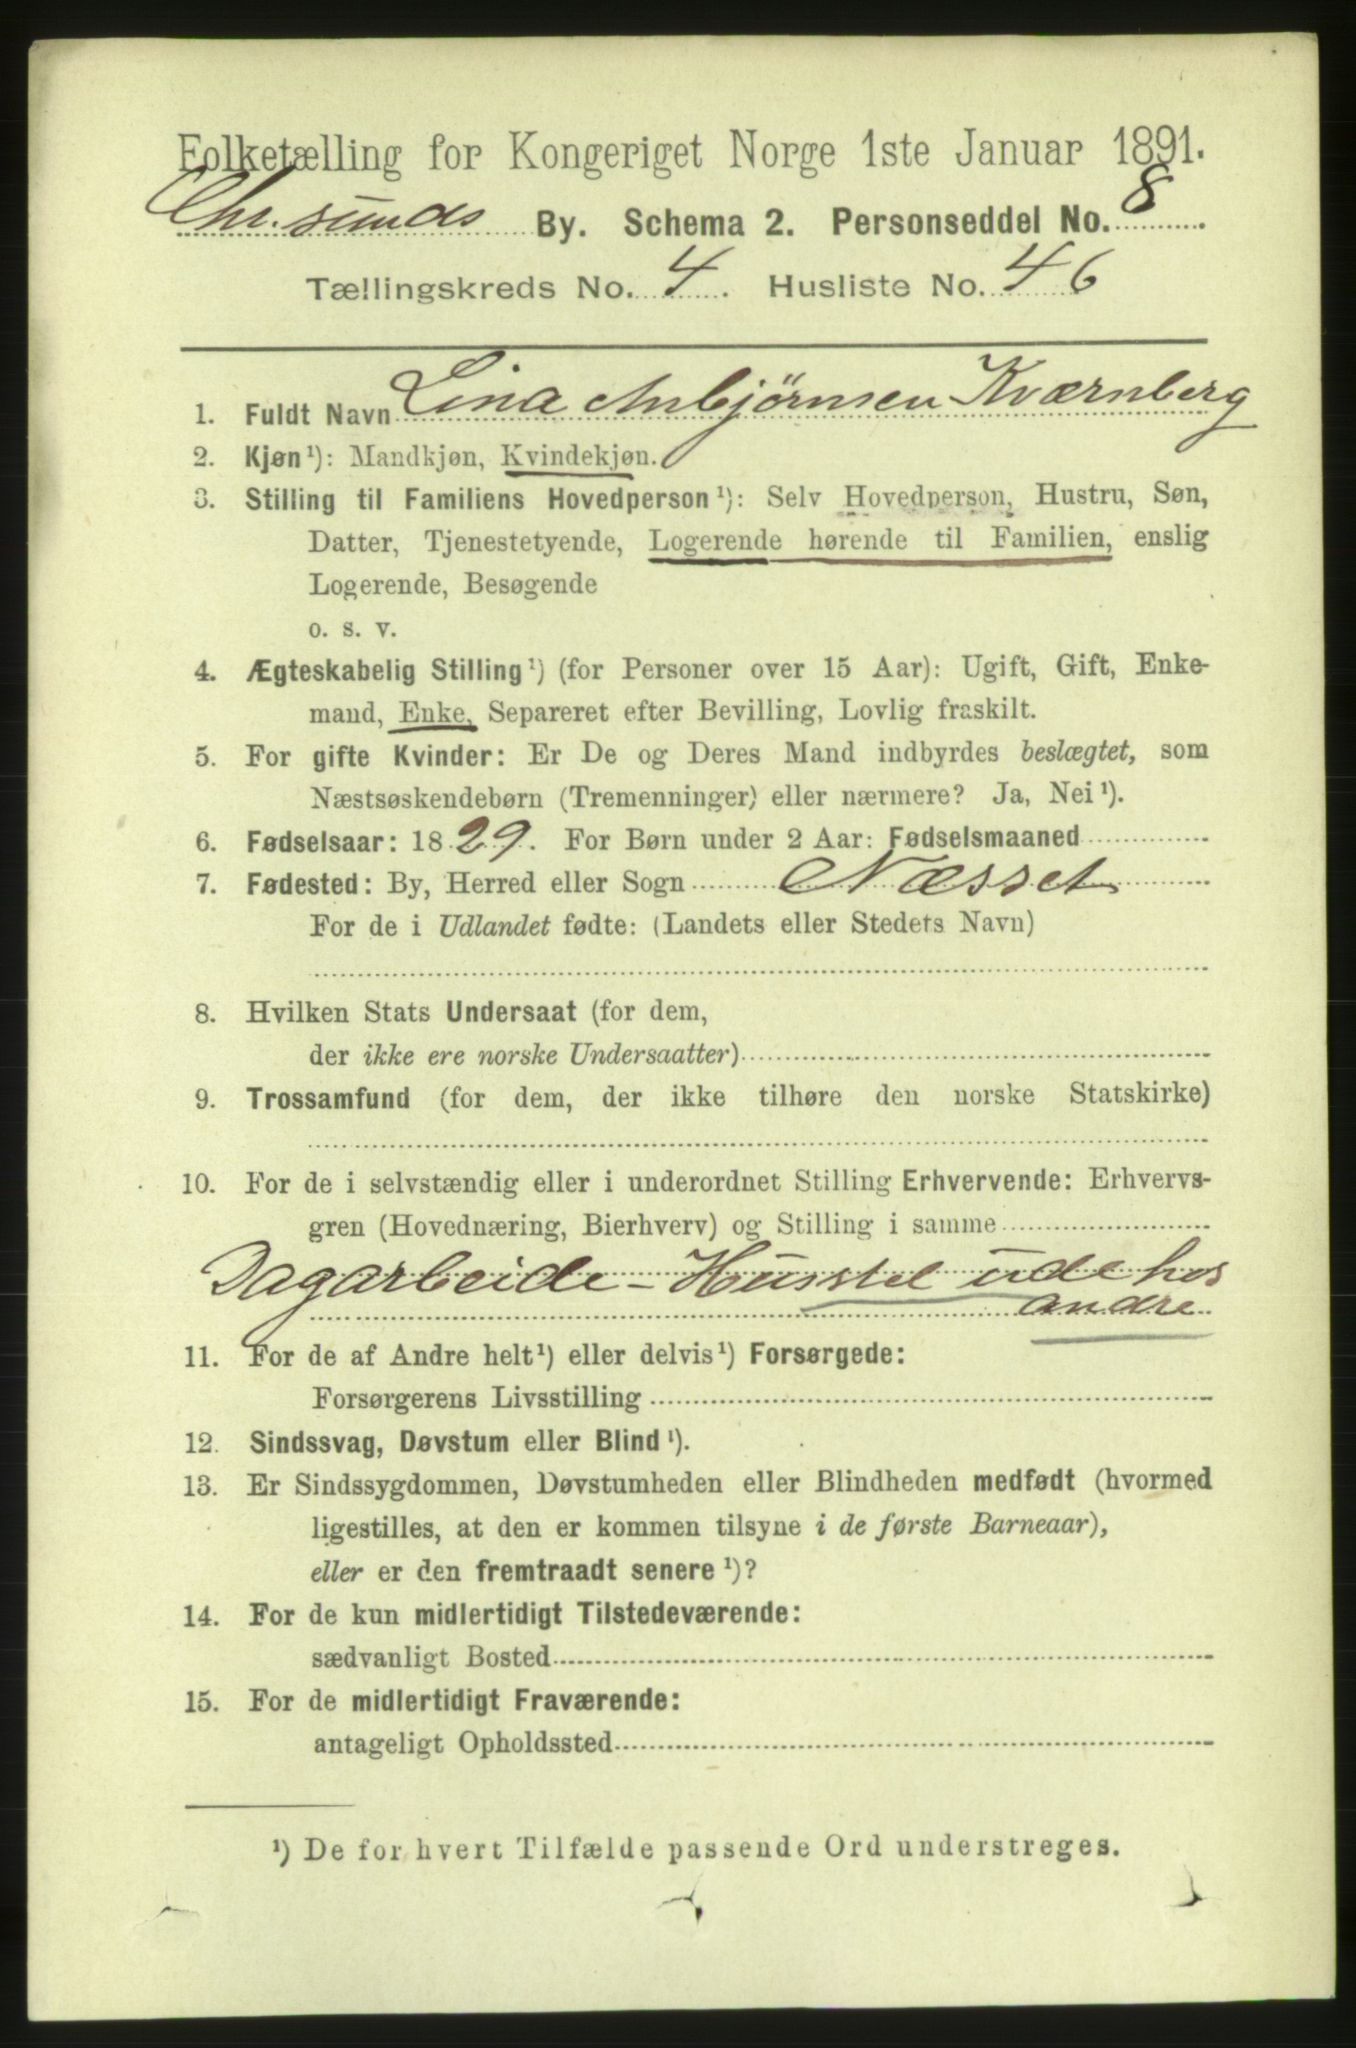 Folketælling for Kongeriget Norge 1ste Januar 1891.
Chr.sunds By. Schema 2. Personseddel No. 8
Tællingskreds No. 4. Husliste No. 46
1. Fuldt Navn Lina Anbjørnsen Kværnberg
2. Kjøn¹): Mandkjøn, Kvindekjøn.
3. Stilling til Familiens Hovedperson¹): Selv Hovedperson, Hustru, Søn,
Datter, Tjenestetyende, Logerende hørende til Familien, enslig
Logerende, Besøgende
o. s. v.
4. Ægteskabelig Stilling¹) (for Personer over 15 Aar): Ugift, Gift, Enke-
mand, Enke, Separeret efter Bevilling, Lovlig fraskilt.
5. For gifte Kvinder: Er De og Deres Mand indbyrdes beslægtet, som
Næstsøskendebørn (Tremenninger) eller nærmere? Ja, Nei¹).
6. Fødselsaar: 1829. For Børn under 2 Aar: Fødselsmaaned
7. Fødested: By, Herred eller Sogn Næsset
For de i Udlandet fødte: (Landets eller Stedets Navn)
8. Hvilken Stats Undersaat (for dem,
der ikke ere norske Undersaatter)
9. Trossamfund (for dem, der ikke tilhøre den norske Statskirke)
10. For de i selvstændig eller i underordnet Stilling Erhvervende: Erhvervs-
gren (Hovednæring, Bierhverv) og Stilling i samme
Dagarbeide - Husstel ude hos
andre
11. For de af Andre helt¹) eller delvis¹) Forsørgede:
Forsørgerens Livsstilling
12. Sindssvag, Døvstum eller Blind¹).
13. Er Sindssygdommen, Døvstumheden eller Blindheden medfødt (hvormed
ligestilles, at den er kommen tilsyne i de første Barneaar),
eller er den fremtraadt senere¹)?
14. For de kun midlertidigt Tilstedeværende:
sædvanligt Bosted
15. For de midlertidigt Fraværende:
antageligt Opholdssted
¹) De for hvert Tilfælde passende Ord understreges.